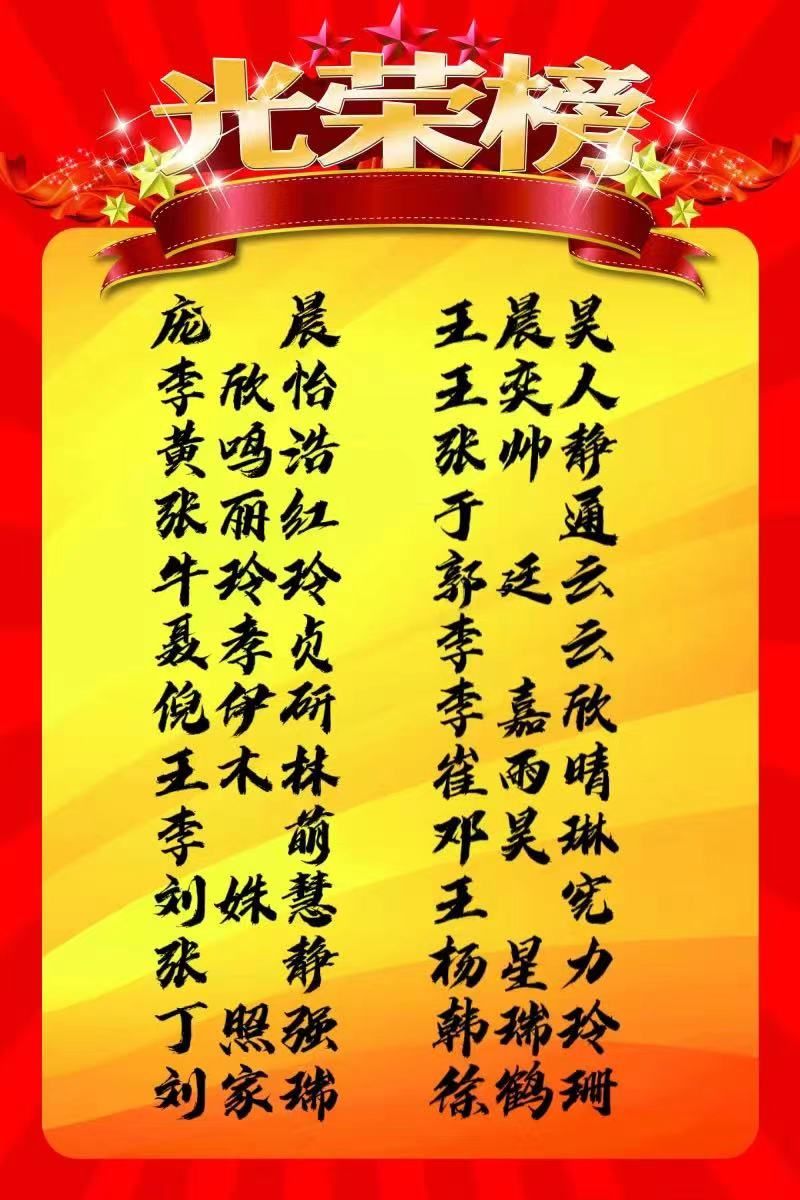 光荣榜
庞 晨 王晨昊
李欣怡 王奕人
黄鸣浩 张帅静
张丽红 于 通
牛玲玲 郭廷云
聂孝贞 李 云
倪伊研 李嘉欣
王木林 崔雨晴
李 萌 邓昊琳
刘姝慧 王 宪
张 静 杨星力
丁照强 韩瑞玲
刘家瑞 徐鹤珊